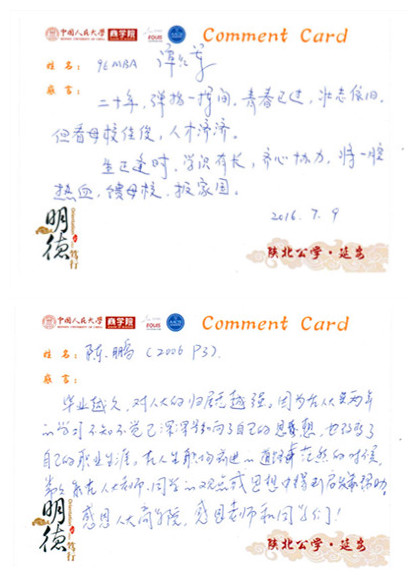 中国人民大学 商学院 Comment Card
姓名: 9EMBA
感言:
二十年,弹指一挥间,青春已逝,壮志依旧。
但看母校佳俊,人才济济。
生已逢时,学识有长,齐心协力,将一腔
热血,馈母校,报家国。
2016.7.9
明德
陕北公学·延安
中国人民大学 商学院 Comment Card
姓名: 陈鹏(2006 P3)
感言:
毕业越久,对人大的归属感越强。因为在人大两年
的学习不知不觉已深深影响了自己的思想,也影响了
自己的职业生涯。在人生职场前进的道路 茫然的时候,
总 在人大老师、同学的观点或思想中得到启发和帮助。
感恩人大商学院,感恩老师和同学们!
明德
陕北公学·延安